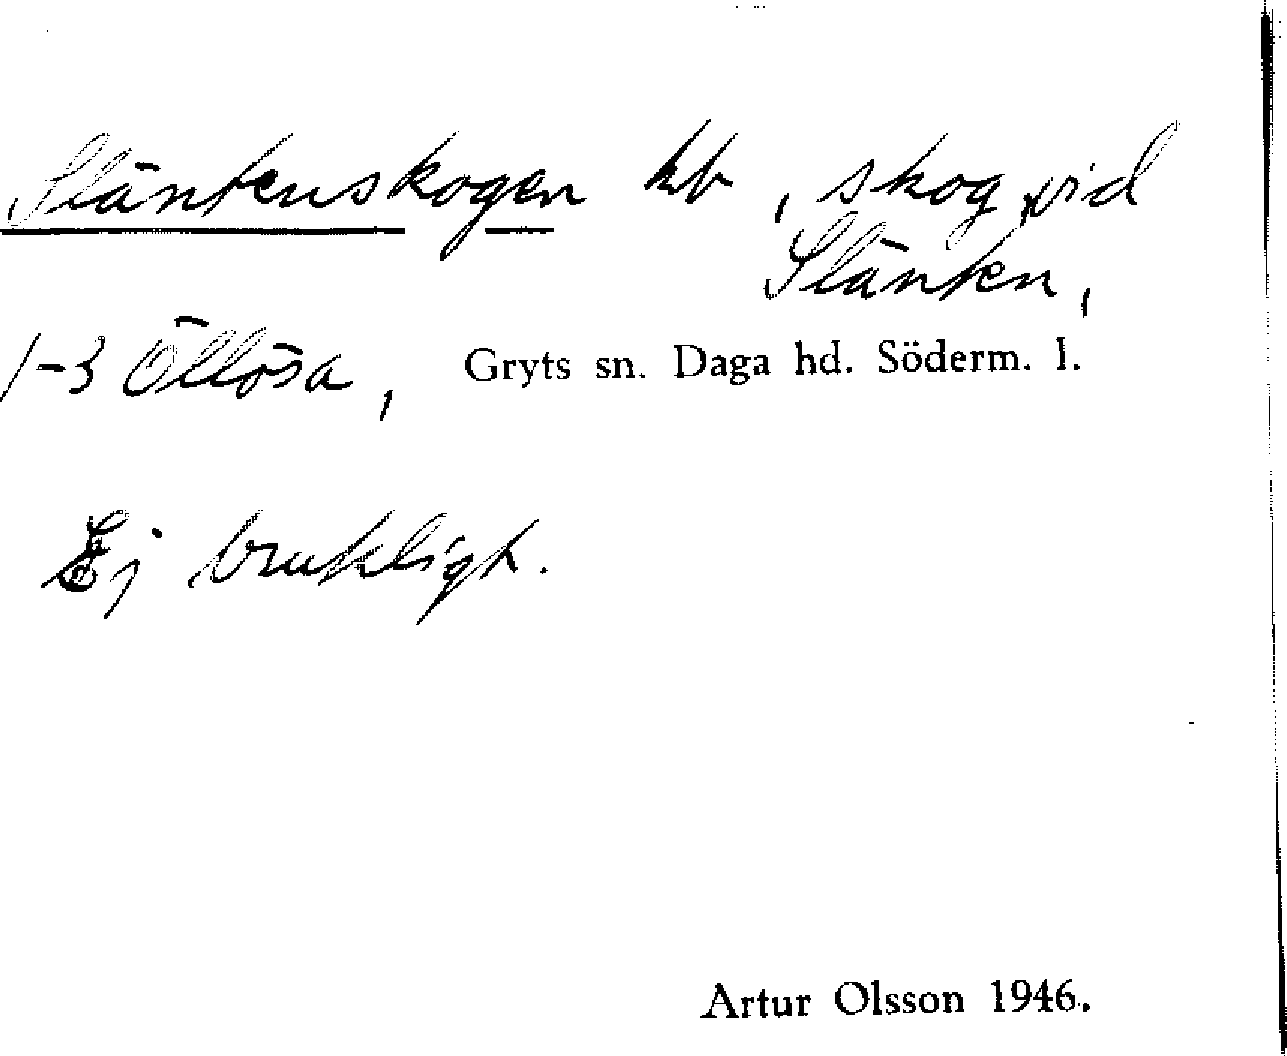 Släntenskogen kb, skog vid
Slänten,
1-3 Öllösa, Gryts sn. Daga hd. Söderm. l.
Ej brukligt.
Artur Olsson 1946.